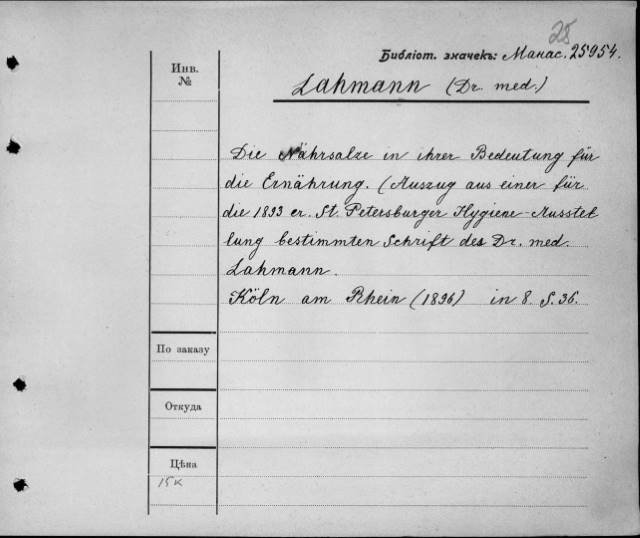 25
Библіот. значекъ: Манас. 25954.
Инв.
№
Lahmann (Dr. med.)
Die Nährsalze in ihrer Bedeutung für
die Ernährung. (Auszug aus einer für
die 1893 er. St. Petersburger Hygiene-Ausstel
lung bestimmten Schrift des Dr. med.
Lahmann.
Köln am Rhein (1896) in 8 S. 36.
По заказу
Откуда
Цѣна
15к